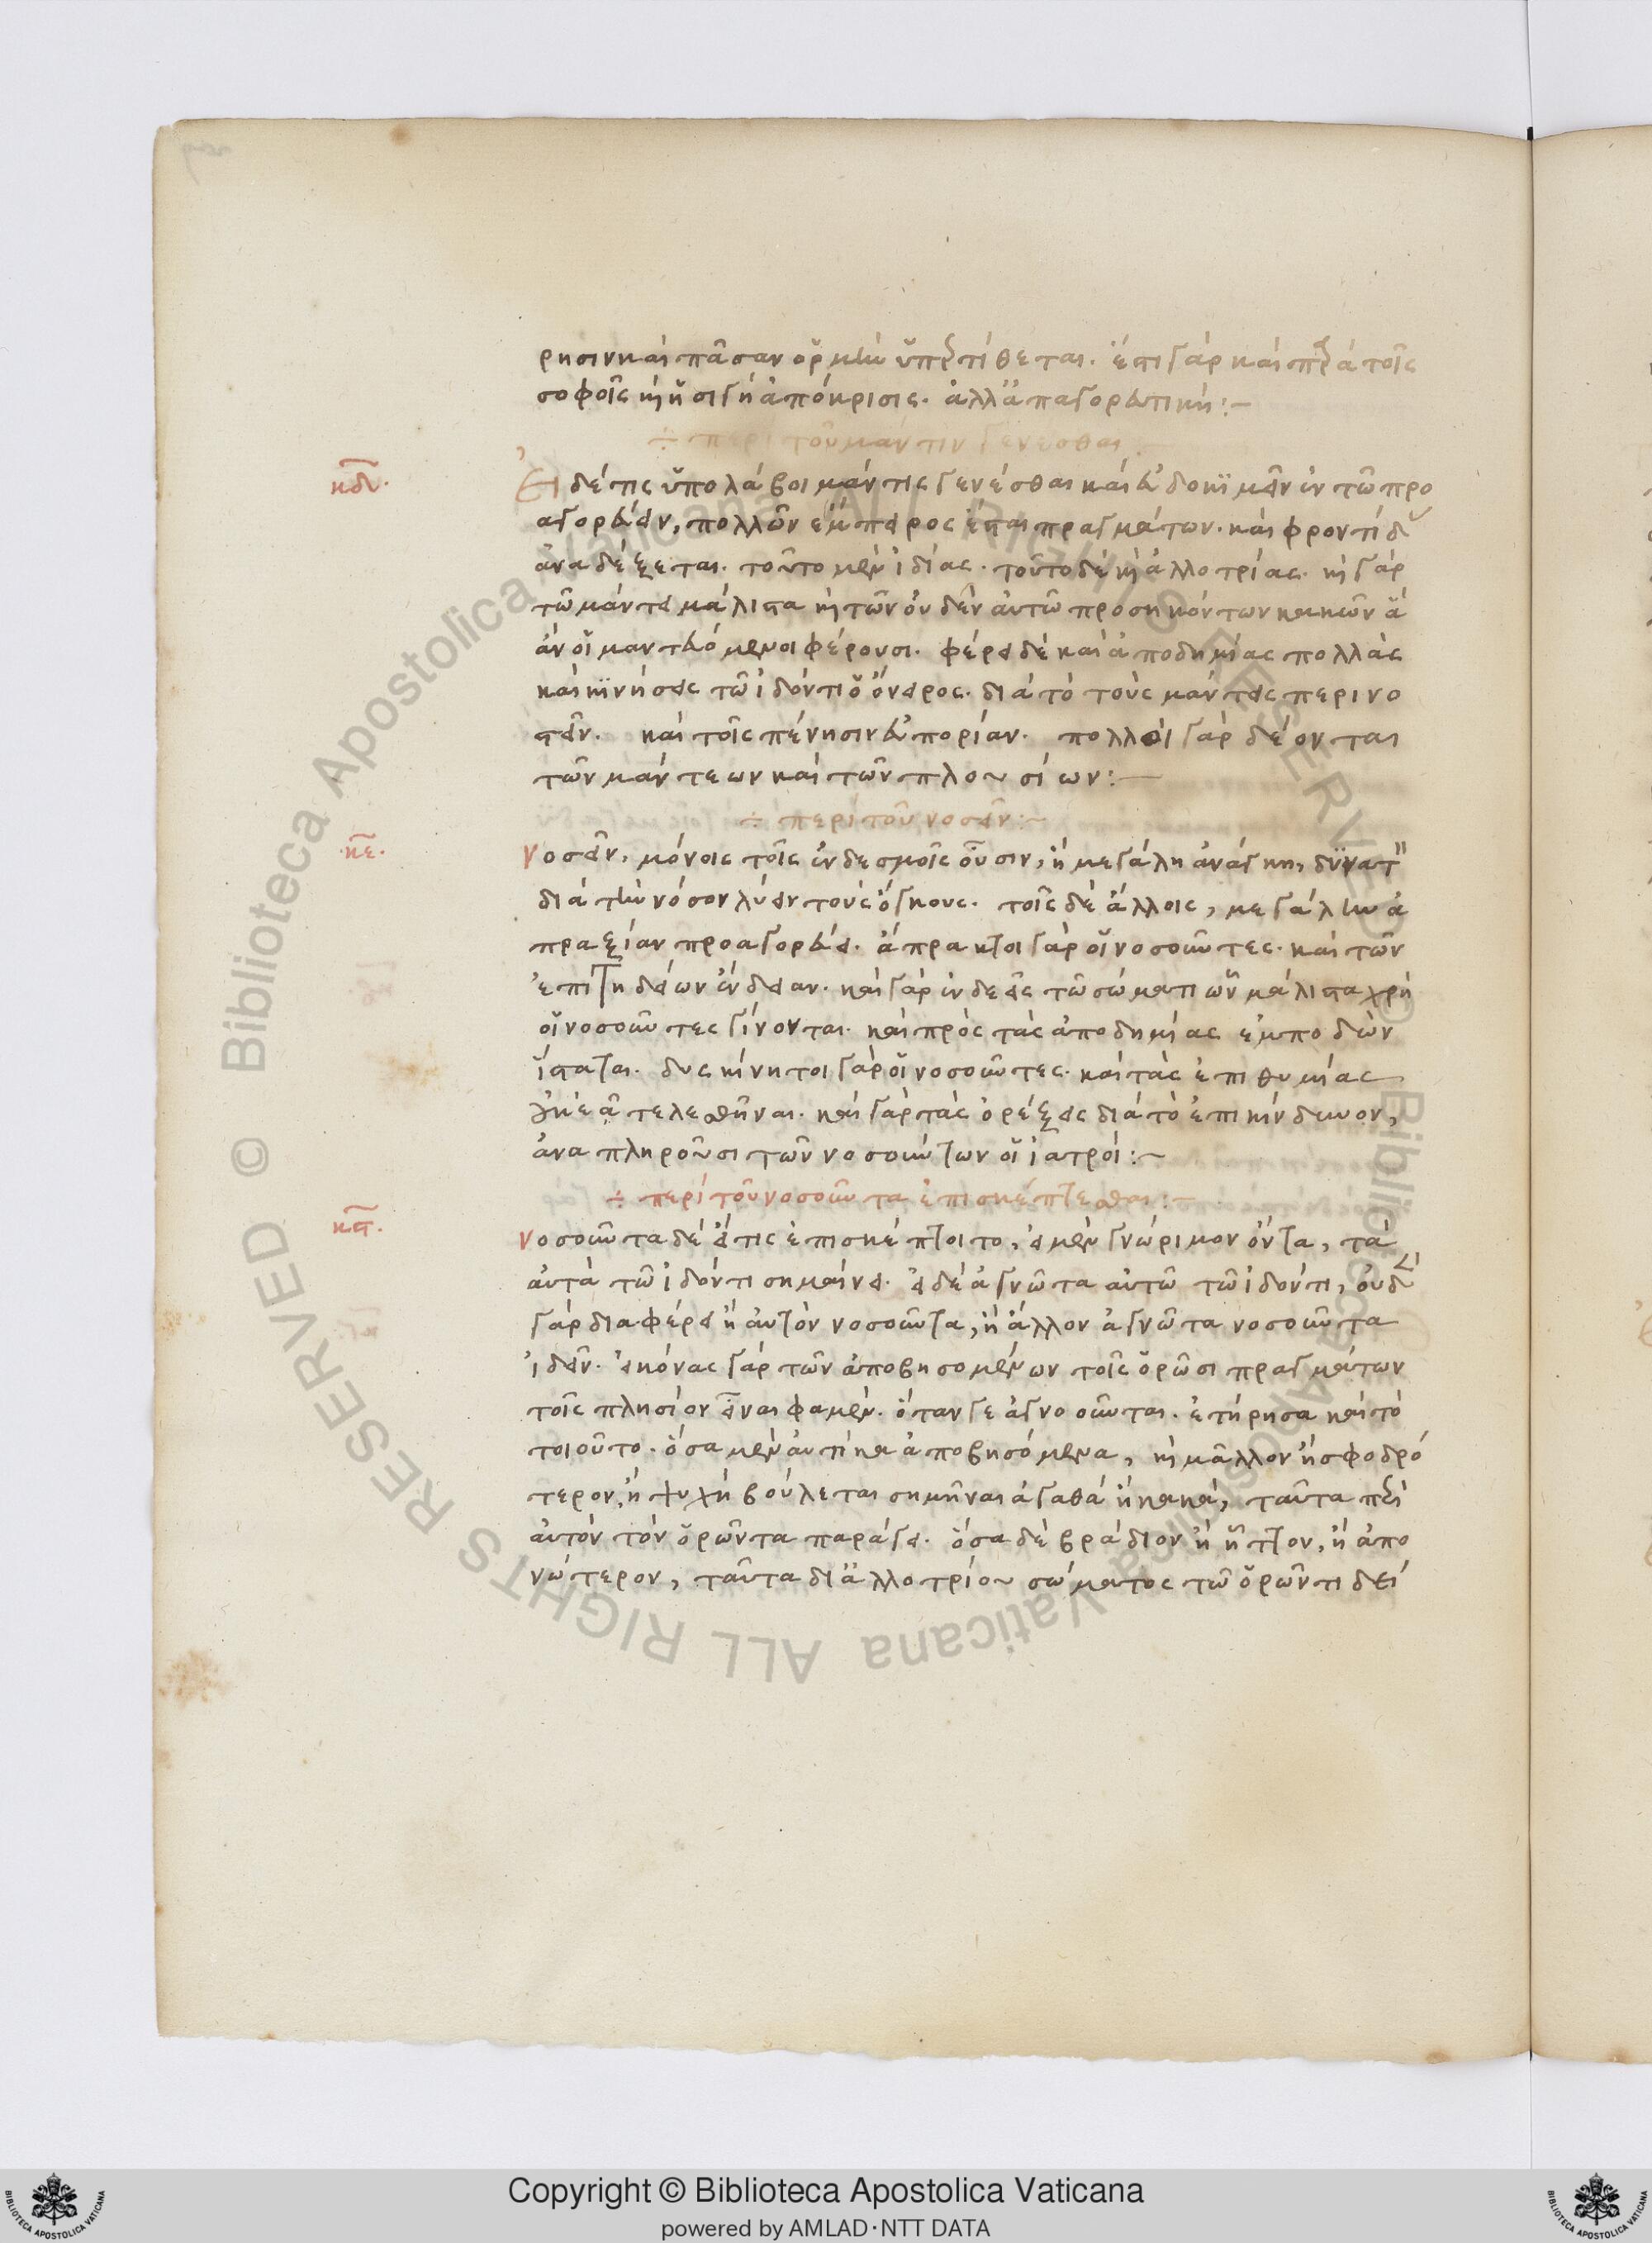 ρησιν καὶ πᾶσαν ὁρμὴν ὑπερτίθεται. ἔστι γὰρ καὶ παρὰ τοῖς
σοφοῖς ἡ σιγὴ ἀπόκρισις. ἀλλ' ἀπαγορευτική:–
÷ περὶ τοῦ μάντιν γενέσθαι
κδ. Εἰ δέ τις ὑπολάβοι μάντις γενέσθαι καὶ εὐδοκιμεῖν ἐν τῶ προ
αγορεύειν, πολλῶν ἔμπειρος ἔσται πραγμάτων. καὶ φροντίδας
ἀναδέξεται. τοῦτο μὲν ἰδίας. τοῦτο δὲ καὶ ἀλλοτρίας. καὶ γὰρ
τῶ μάντει μάλιστα καὶ τῶν οὐδὲν αὐτῶ προσηκόντων κακῶν ἃ
ἂν οἱ μαντευόμενοι φέρουσι. φέρει δὲ καὶ ἀποδημίας πολλὰς
καὶ κινήσεις τῶ ἰδόντι ὁ ὄνειρος. διὰ τὸ τοὺς μάντεις περινο
στεῖν. καὶ τοῖς πένησιν εὐπορίαν. πολλοὶ γὰρ δέονται
τῶν μάντεων καὶ τῶν πλουσίων:–
÷ περὶ τοῦ νοσεῖν:~
κε. νοσεῖν, μόνοις τοῖς ἐν δεσμοῖς οὖσιν, ἢ μεγάλη ἀνάγκη, δύναται
διὰ τὴν νόσον λύειν τοὺς ὄγκους. τοῖς δὲ ἄλλοις, μεγάλην ἀ
πραξίαν προαγορεύει. ἄπρακτοι γὰρ οἱ νοσοῦντες. καὶ τῶν
ἐπιτηδείων ἔνδειαν. καὶ γὰρ ἐνδεεῖς τῶ σώματι ὧν μάλιστα χρὴ
οἱ νοσοῦντες γίνονται. καὶ πρὸς τὰς ἀποδημίας ἐμποδὼν
ἵσταται. δυσκίνητοι γὰρ οἱ νοσοῦντες. καὶ τὰς ἐπιθυμίας
οὐκ ἐᾶ τελεσθῆναι. καὶ γὰρ τὰς ὀρέξεις διὰ τὸ ἐπικίνδυνον,
ἀναπληροῦσι τῶν νοσούντων οἱ ἰατροί:~
÷ περὶ τοῦ νοσοῦντα ἐπισκέπτεσθαι:–
κϛ. νοσοῦντα δὲ εἴ τις ἐπισκέπτοιτο, εἰ μὲν γνώριμον ὄντα, τὰ
αὐτὰ τῶ ἰδόντι σημαίνει. εἰ δὲ ἀγνῶτα αὐτῶ τῶ ἰδόντι, οὐδὲν
γὰρ διαφέρει ἢ αὐτὸν νοσοῦντα, ἢ ἄλλον ἀγνῶτα νοσοῦντα
ἰδεῖν. εἰκόνας γὰρ τῶν ἀποβησομένων τοῖς ὁρῶσι πραγμάτων
τοῖς πλησίον εἶναι φαμέν. ὅταν γε ἀγνοοῦνται. ἐτήρησα καὶ τὸ
τοιοῦτο. ὅσα μὲν αὐτίκα ἀποβησόμενα, καὶ μᾶλλον ἢ σφοδρό
τερον, ἡ ψυχὴ βούλεται σημῆναι ἀγαθὰ ἢ κακά, ταῦτα περὶ
αὐτὸν τὸν ὁρῶντα παράγει. ὅσα δὲ βράδιον ἢ ἧττον, ἢ ἀπο
νώτερον, ταῦτα δι' ἀλλοτρίου σώματος τῶ ὁρῶντι δεί
Copyright © Biblioteca Apostolica Vaticana
powered by AMLAD·NTT DATA